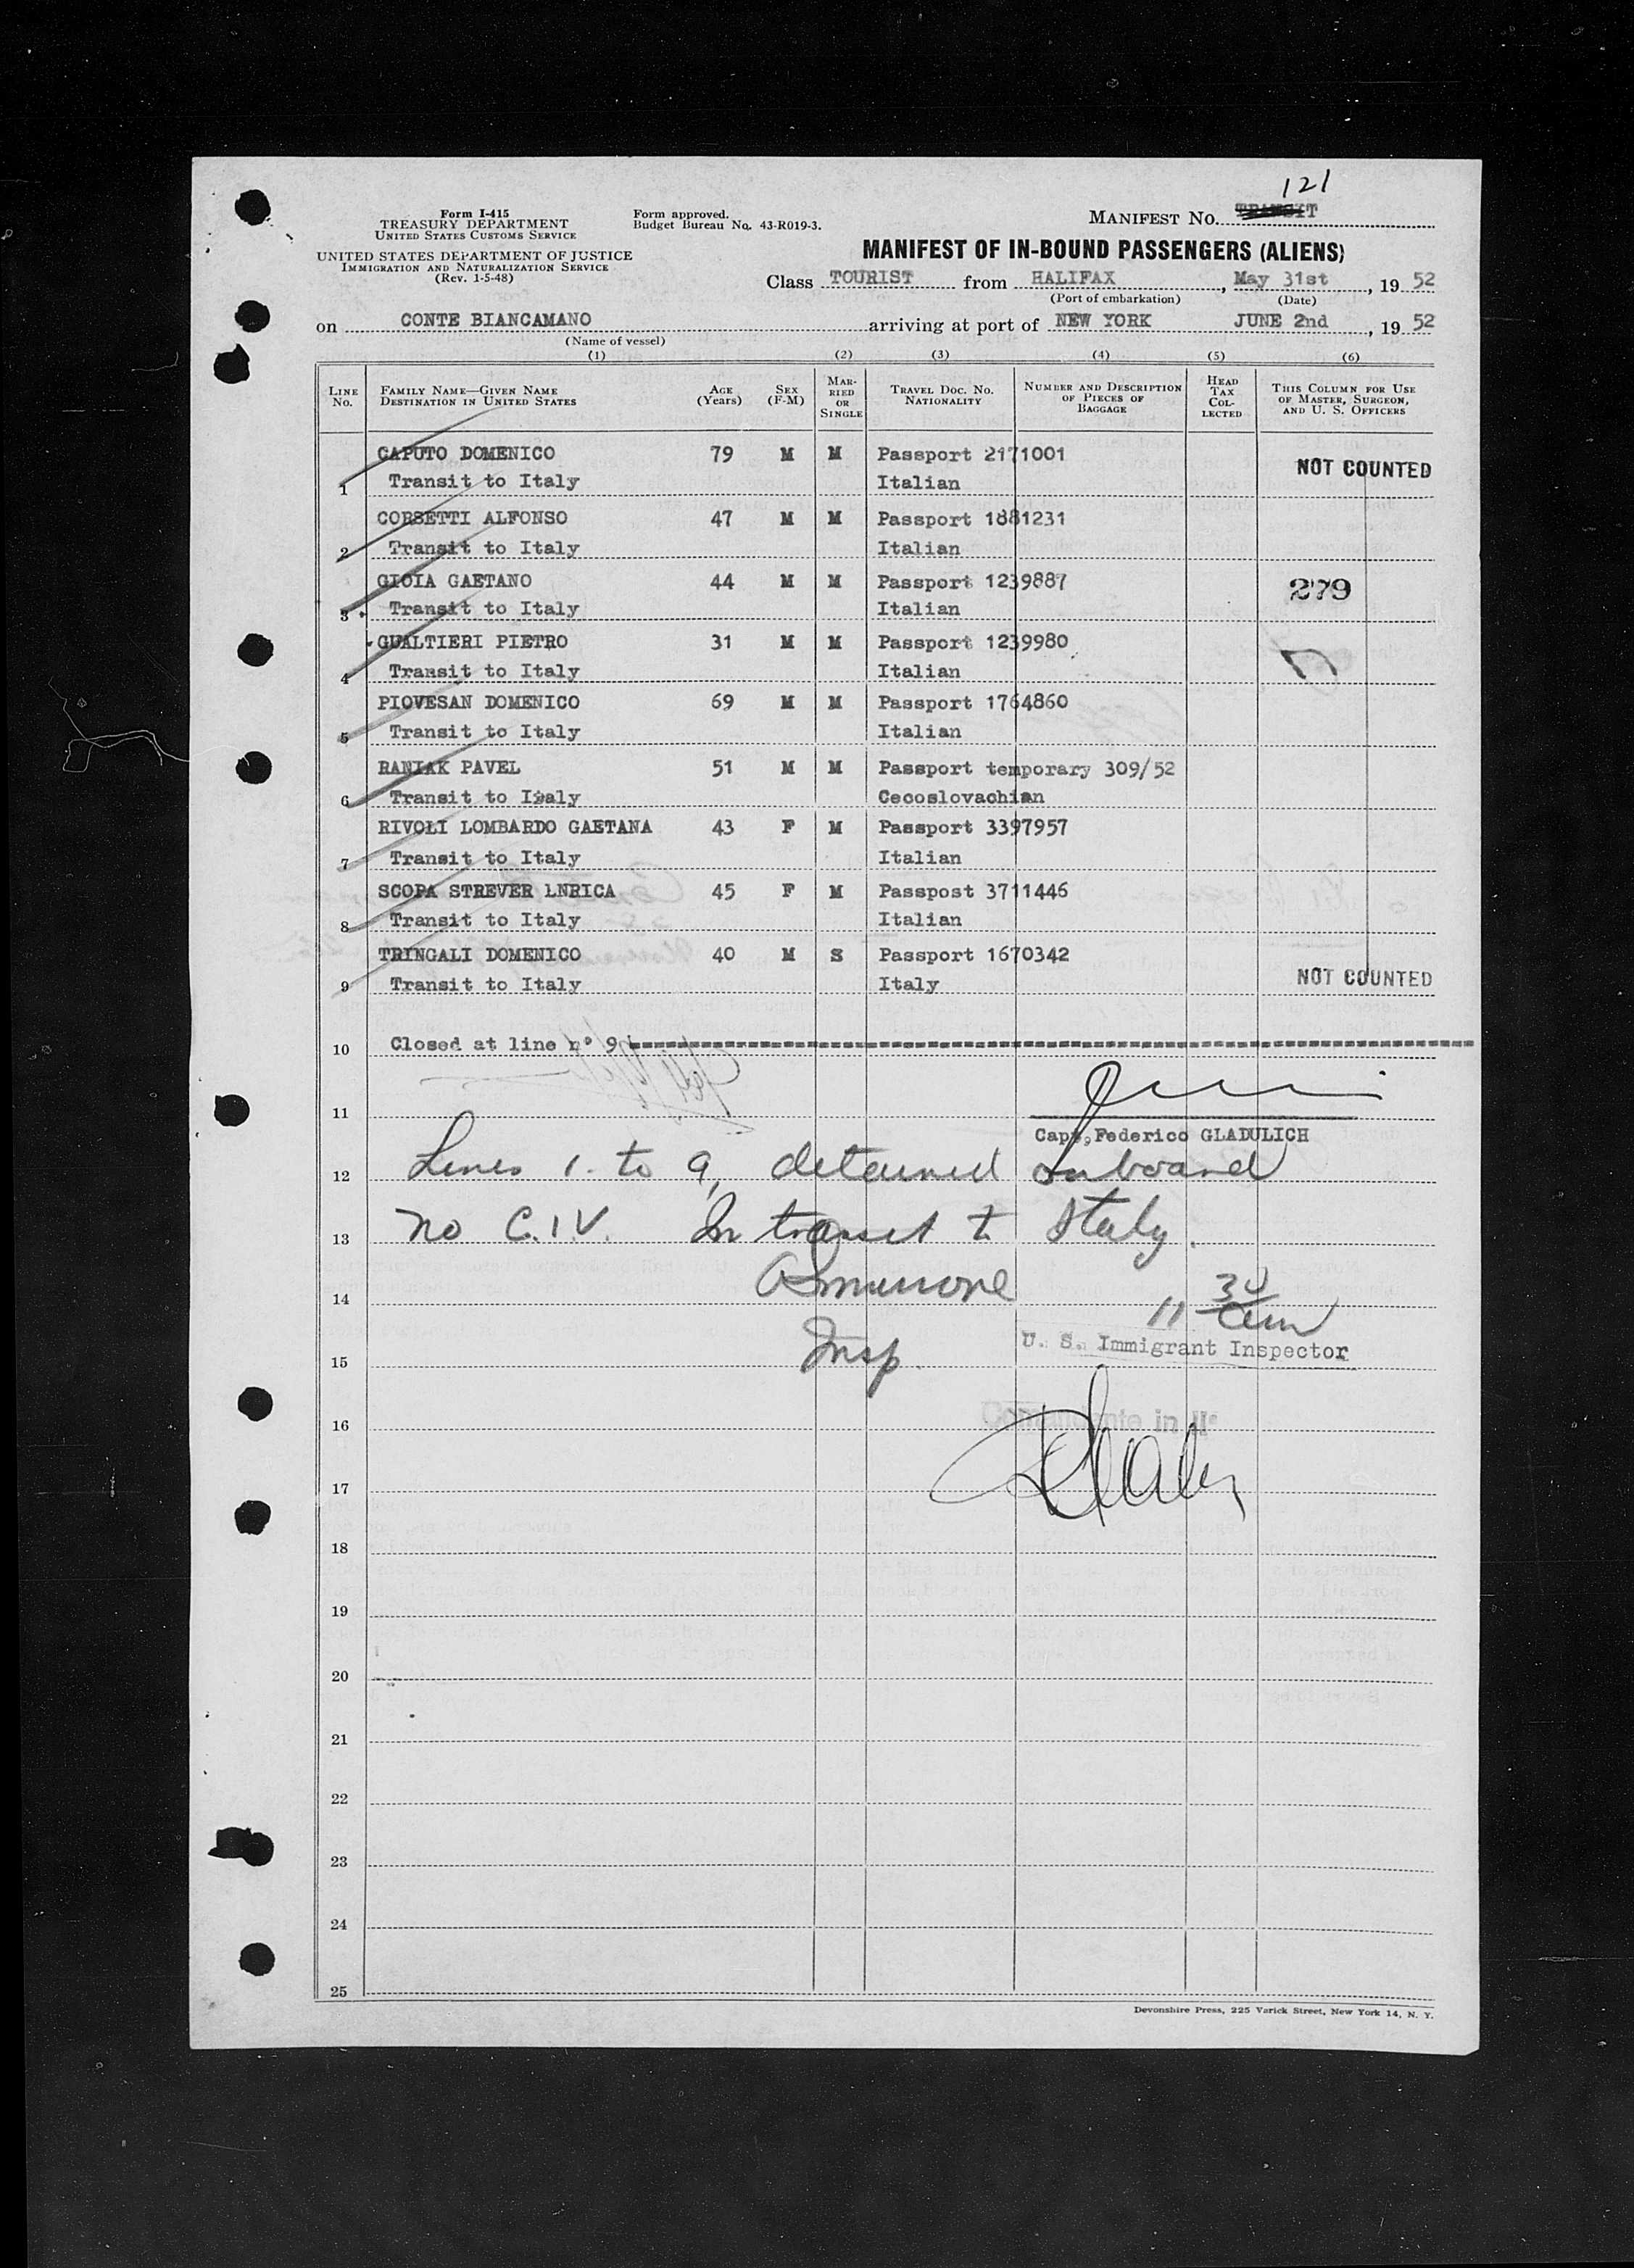 121
Form I-415
TREASURY DEPARTMENT
UNITED STATES CUSTOMS SERVICE
UNITED STATES DEPARTMENT OF JUSTICE
IMMIGRATION AND NATURALIZATION SERVICE
(Rev. 1-5-48)
Form approved.
Budget Bureau No. 43-R019-3.
MANIFEST No. TRANSIT
MANIFEST OF IN-BOUND PASSENGERS (ALIENS)
Class TOURIST from HALIFAX, May 31st, 19 52
(Port of embarkation) (Date)
on CONTE BIANCAMANO arriving at port of NEW YORK JUNE 2nd, 19 52
(Name of vessel)
(1) (2) (3) (4) (5) (6)
LINE No. FAMILY NAME—GIVEN NAME DESTINATION IN UNITED STATES AGE (Years) SEX (F-M) MARRIED OR SINGLE TRAVEL DOC. NO. NATIONALITY NUMBER AND DESCRIPTION OF PIECES OF BAGGAGE HEAD TAX COLLECTED THIS COLUMN FOR USE OF MASTER, SURGEON, AND U. S. OFFICERS
CAPUTO DOMENICO 79 M M Passport 2171001 NOT COUNTED
1 Transit to Italy Italian
CORSETTI ALFONSO 47 M M Passport 1881231
2 Transit to Italy Italian
GIOIA GAETANO 44 M M Passport 1239887 279
3 Transit to Italy Italian
GUALTIERI PIETRO 31 M M Passport 1239980
4 Transit to Italy Italian
PIOVESAN DOMENICO 69 M M Passport 1764860
5 Transit to Italy Italian
RANIAK PAVEL 51 M M Passport temporary 309/52
6 Transit to Italy Cecoslovachian
RIVOLI LOMBARDO GAETANA 43 F M Passport 3397957
7 Transit to Italy Italian
SCOPA STREVER LNRICA 45 F M Passpost 3711446
8 Transit to Italy Italian
TRINGALI DOMENICO 40 M S Passport 1670342
9 Transit to Italy Italy NOT COUNTED
10 Closed at line n° 9
11
Capt, Federico GLADULICH
12 Lines 1. to 9, detained onboard
13 no C.I.V. In transit to Italy.
14 11 30 am
15 Insp. U. S. Immigrant Inspector
16 Comandante in II°
17
18
19
20
21
22
23
24
25
Devonshire Press, 225 Varick Street, New York 14, N. Y.